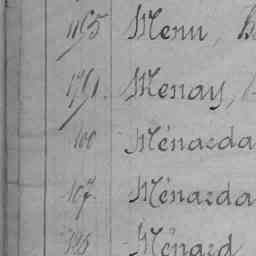 1195 Menu,
1791. Menay,
100 Ménarda
107. Ménarda
395 Ménard